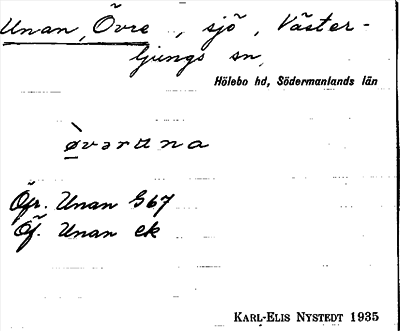 Unan, Övre, sjö, Väster-
ljungs sn,
Hölebo hd, Södermanlands län
ø̀vərʉna
Öfr. Unan G67
Öf. Unan Ek
KARL-ELIS NYSTEDT 1935